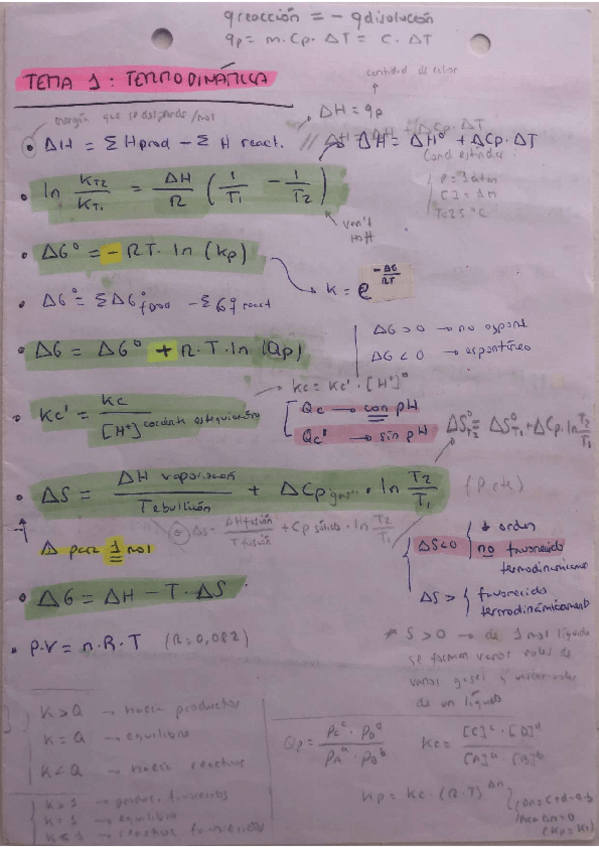 q reacción = - q disolución
qp = m. Cp. ΔT = C. ΔT
cantidad de calor
TEMA 1: TERMODINÁTICA
energía que se desprende /mol
ΔH = qp
ΔH = Σ Hprod - Σ H react.
// ΔH = ΔH + ΔCp. ΔT
ΔH = ΔH° + ΔCp. ΔT
Cond estándar
P = 1 atm
[ ] = 1M
T = 25 °C
ln KT2/KT1 = ΔH/R (1/T1 - 1/T2)
Van't Hoff
ΔG° = - RT. ln (Kp)
K = e^(-ΔG/RT)
ΔG° = ΣΔG°f prod - ΣG°f react
ΔG > 0 → no espont
ΔG < 0 → espontáneo
ΔG = ΔG° + R. T. ln (Qp)
Kc = Kc' . [H+]
Kc' = Kc/[H+] coefic. estequiométrico
Qc → con pH
Qc' → sin pH
ΔS°T2 = ΔS°T1 + ΔCp. ln T2/T1
ΔS = ΔH vaporización/T ebullición + ΔCp gas . ln T2/T1 (P cte)
ΔS = ΔH fusión/T fusión + Cp sólido . ln T2/T1
Δ para 1 mol
ΔS<0
↓ orden
no favorecido
termodinámicamente
ΔG = ΔH - T. ΔS
ΔS >
favorecido
termodinámicament
P.V = n.R.T (R = 0,082)
* S > 0 → de 1 mol líquido
se forman varios moles de
varios gases y
de un líquido
K > Q → hacia productos
K = Q → equilibrio
K < Q → hacia reactivos
Qp = Pc^c . PD^d / PA^a . PB^b
Kc = [C]^c . [D]^d / [A]^a . [B]^b
K > 1 → produc. favorecidos
K = 1 → equilibrio
K < 1 → reactivos favorecidos
Kp = Kc . (R.T)^Δn
Δn = c+d-a-b
Para Δn = 0
(Kp = Kc)